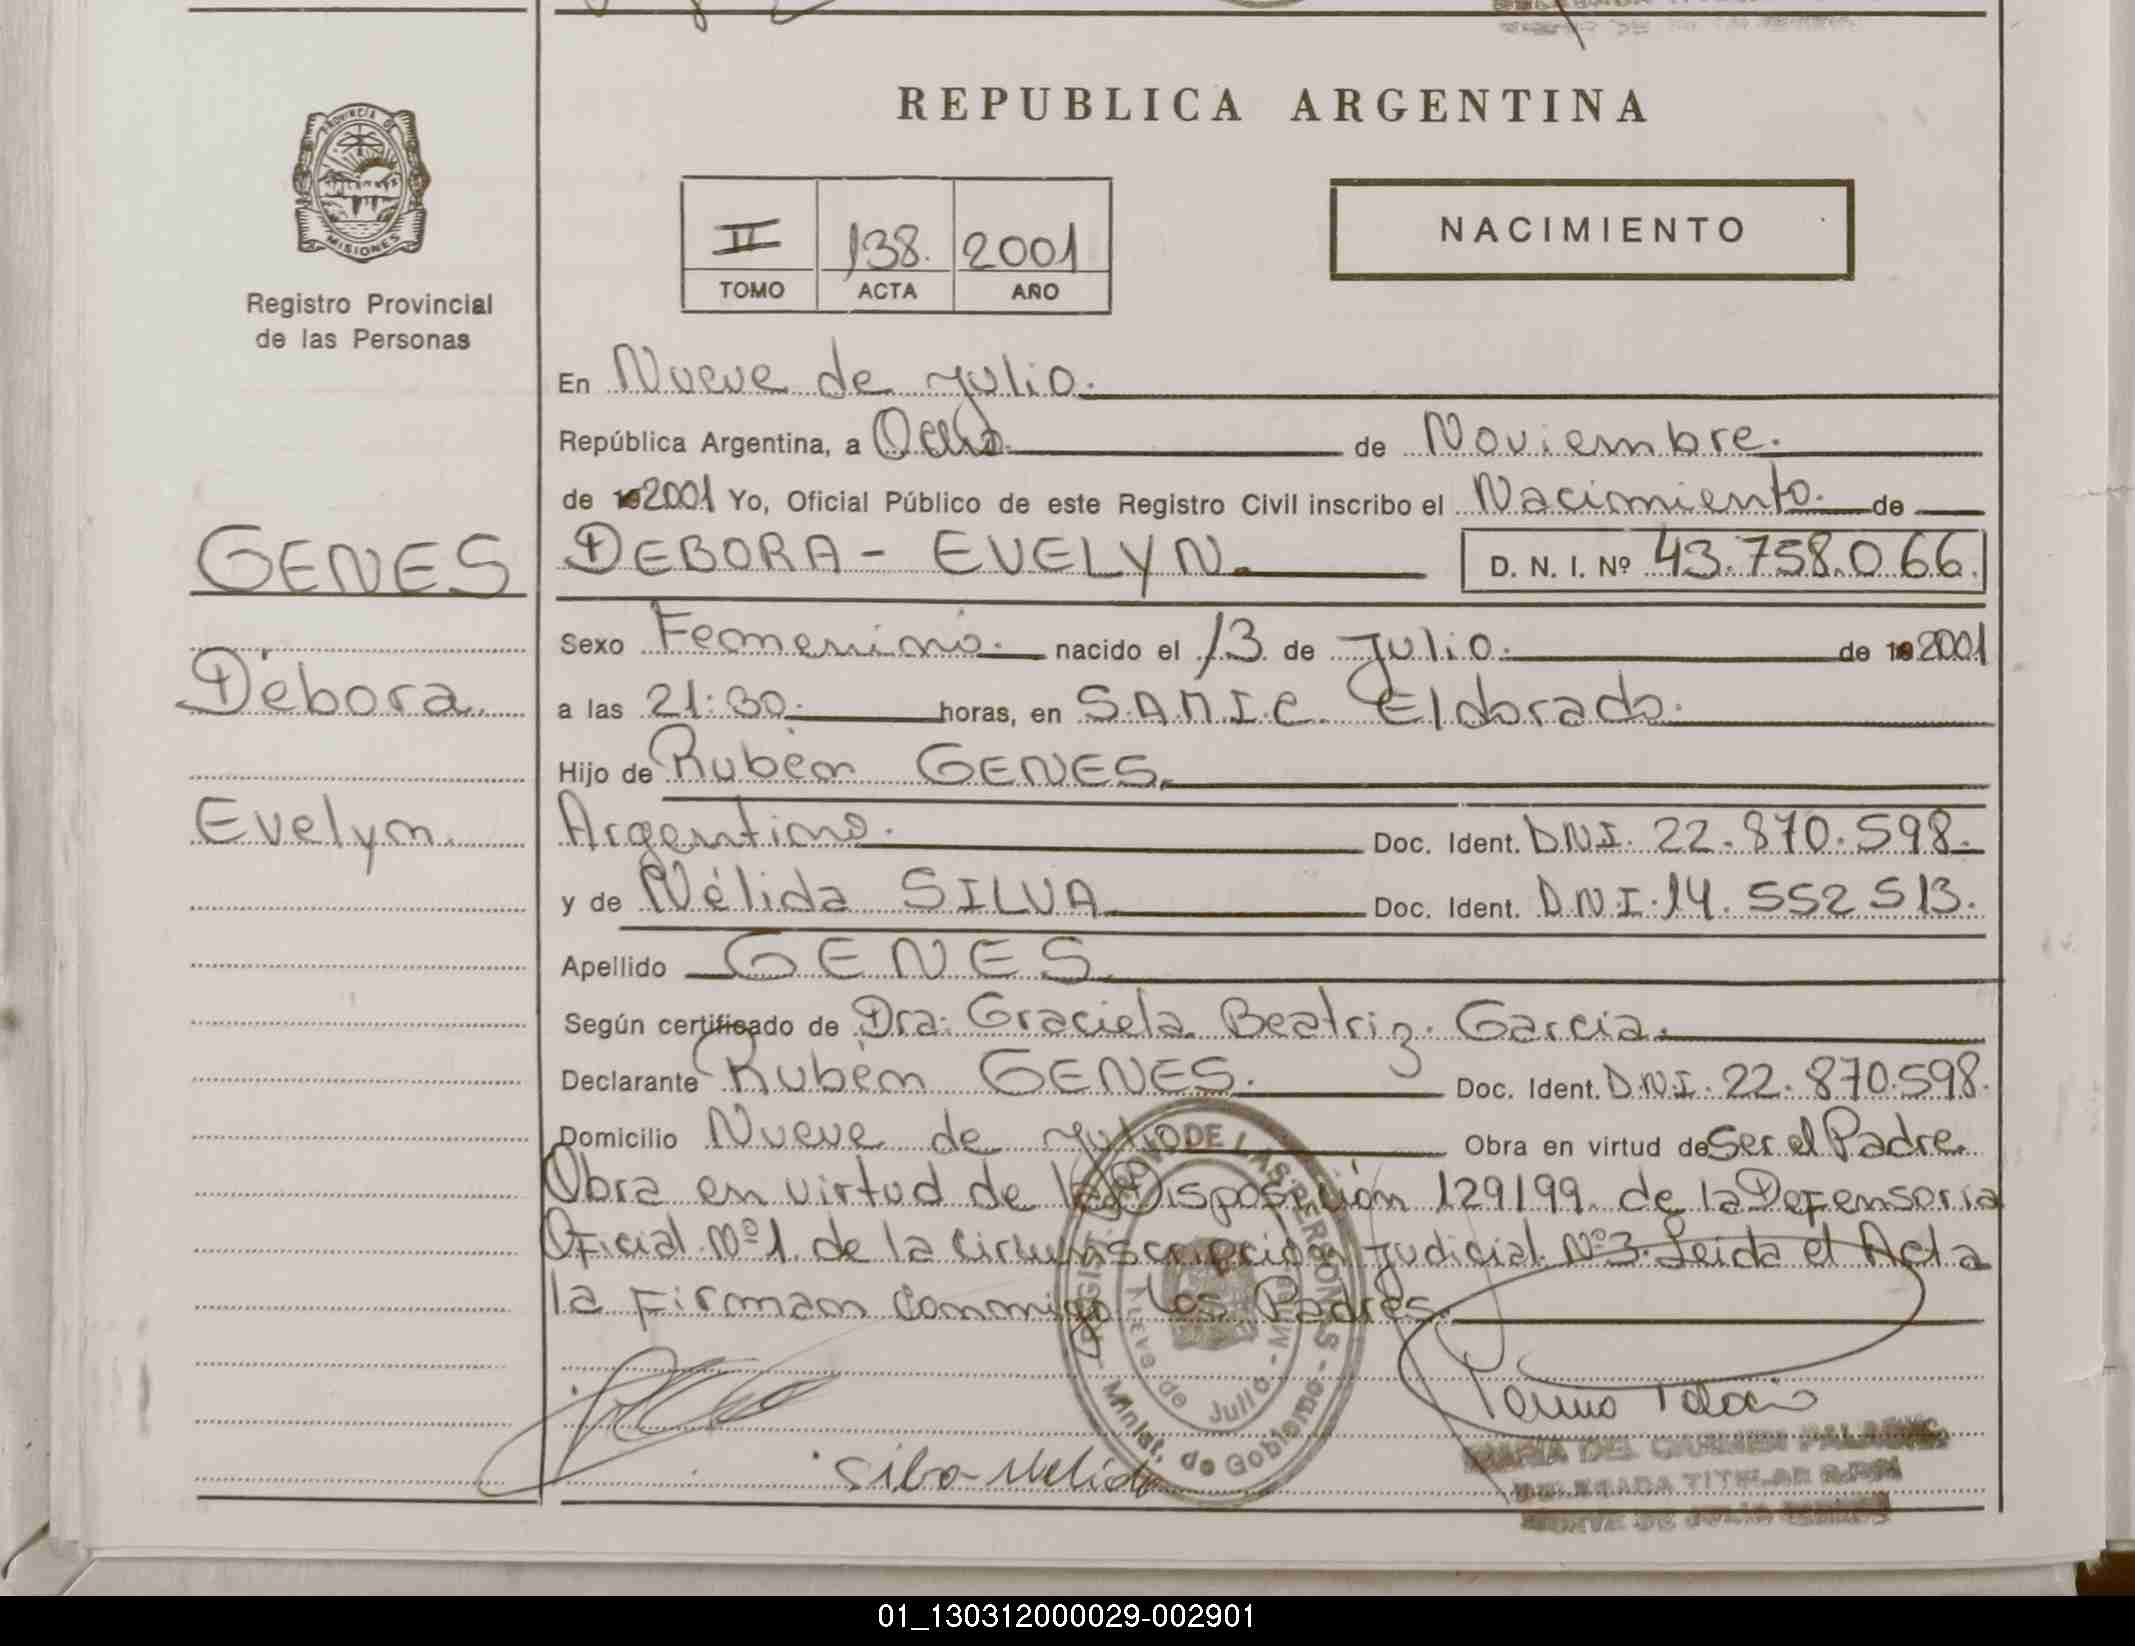 REPUBLICA ARGENTINA
PROVINCIA DE
MISIONES
Registro Provincial
de las Personas
II 138. 2001
TOMO ACTA AÑO
NACIMIENTO
En Nueve de Julio.
República Argentina, a Ocho de Noviembre.
de 192001 Yo, Oficial Público de este Registro Civil inscribo el Nacimiento. de
GENES
DEBORA - EVELYN. D. N. I. Nº 43.758.066.
Sexo Femenino. nacido el 13 de Julio. de 192001
Débora.
a las 21:30. horas, en S.A.M.I.C. Eldorado.
Hijo de Rubén GENES.
Evelyn.
Argentino. Doc. Ident. D.N.I. 22.870.598.
y de Nélida SILVA Doc. Ident. D.N.I. 14.552.513.
Apellido GENES
Según certificado de Dra. Graciela Beatriz Garcia.
Declarante Rubén GENES. Doc. Ident. D.N.I. 22.870.598.
Domicilio Nueve de Julio Obra en virtud de Ser el Padre.
Obra en virtud de la Disposición 129/99. de la Defensoria
Oficial Nº1. de la Circunscripción Judicial Nº3. Leida el Acta
la Firman Conmigo los Padres.
REGISTRO PROV. DE LAS PERSONAS
Nueve de Julio - Mnes
Minist. de Gobierno
Silva Nelida
MARIA DEL CARMEN PALACIO
DELEGADA TITULAR R.P.P.
NUEVE DE JULIO
01_130312000029-002901